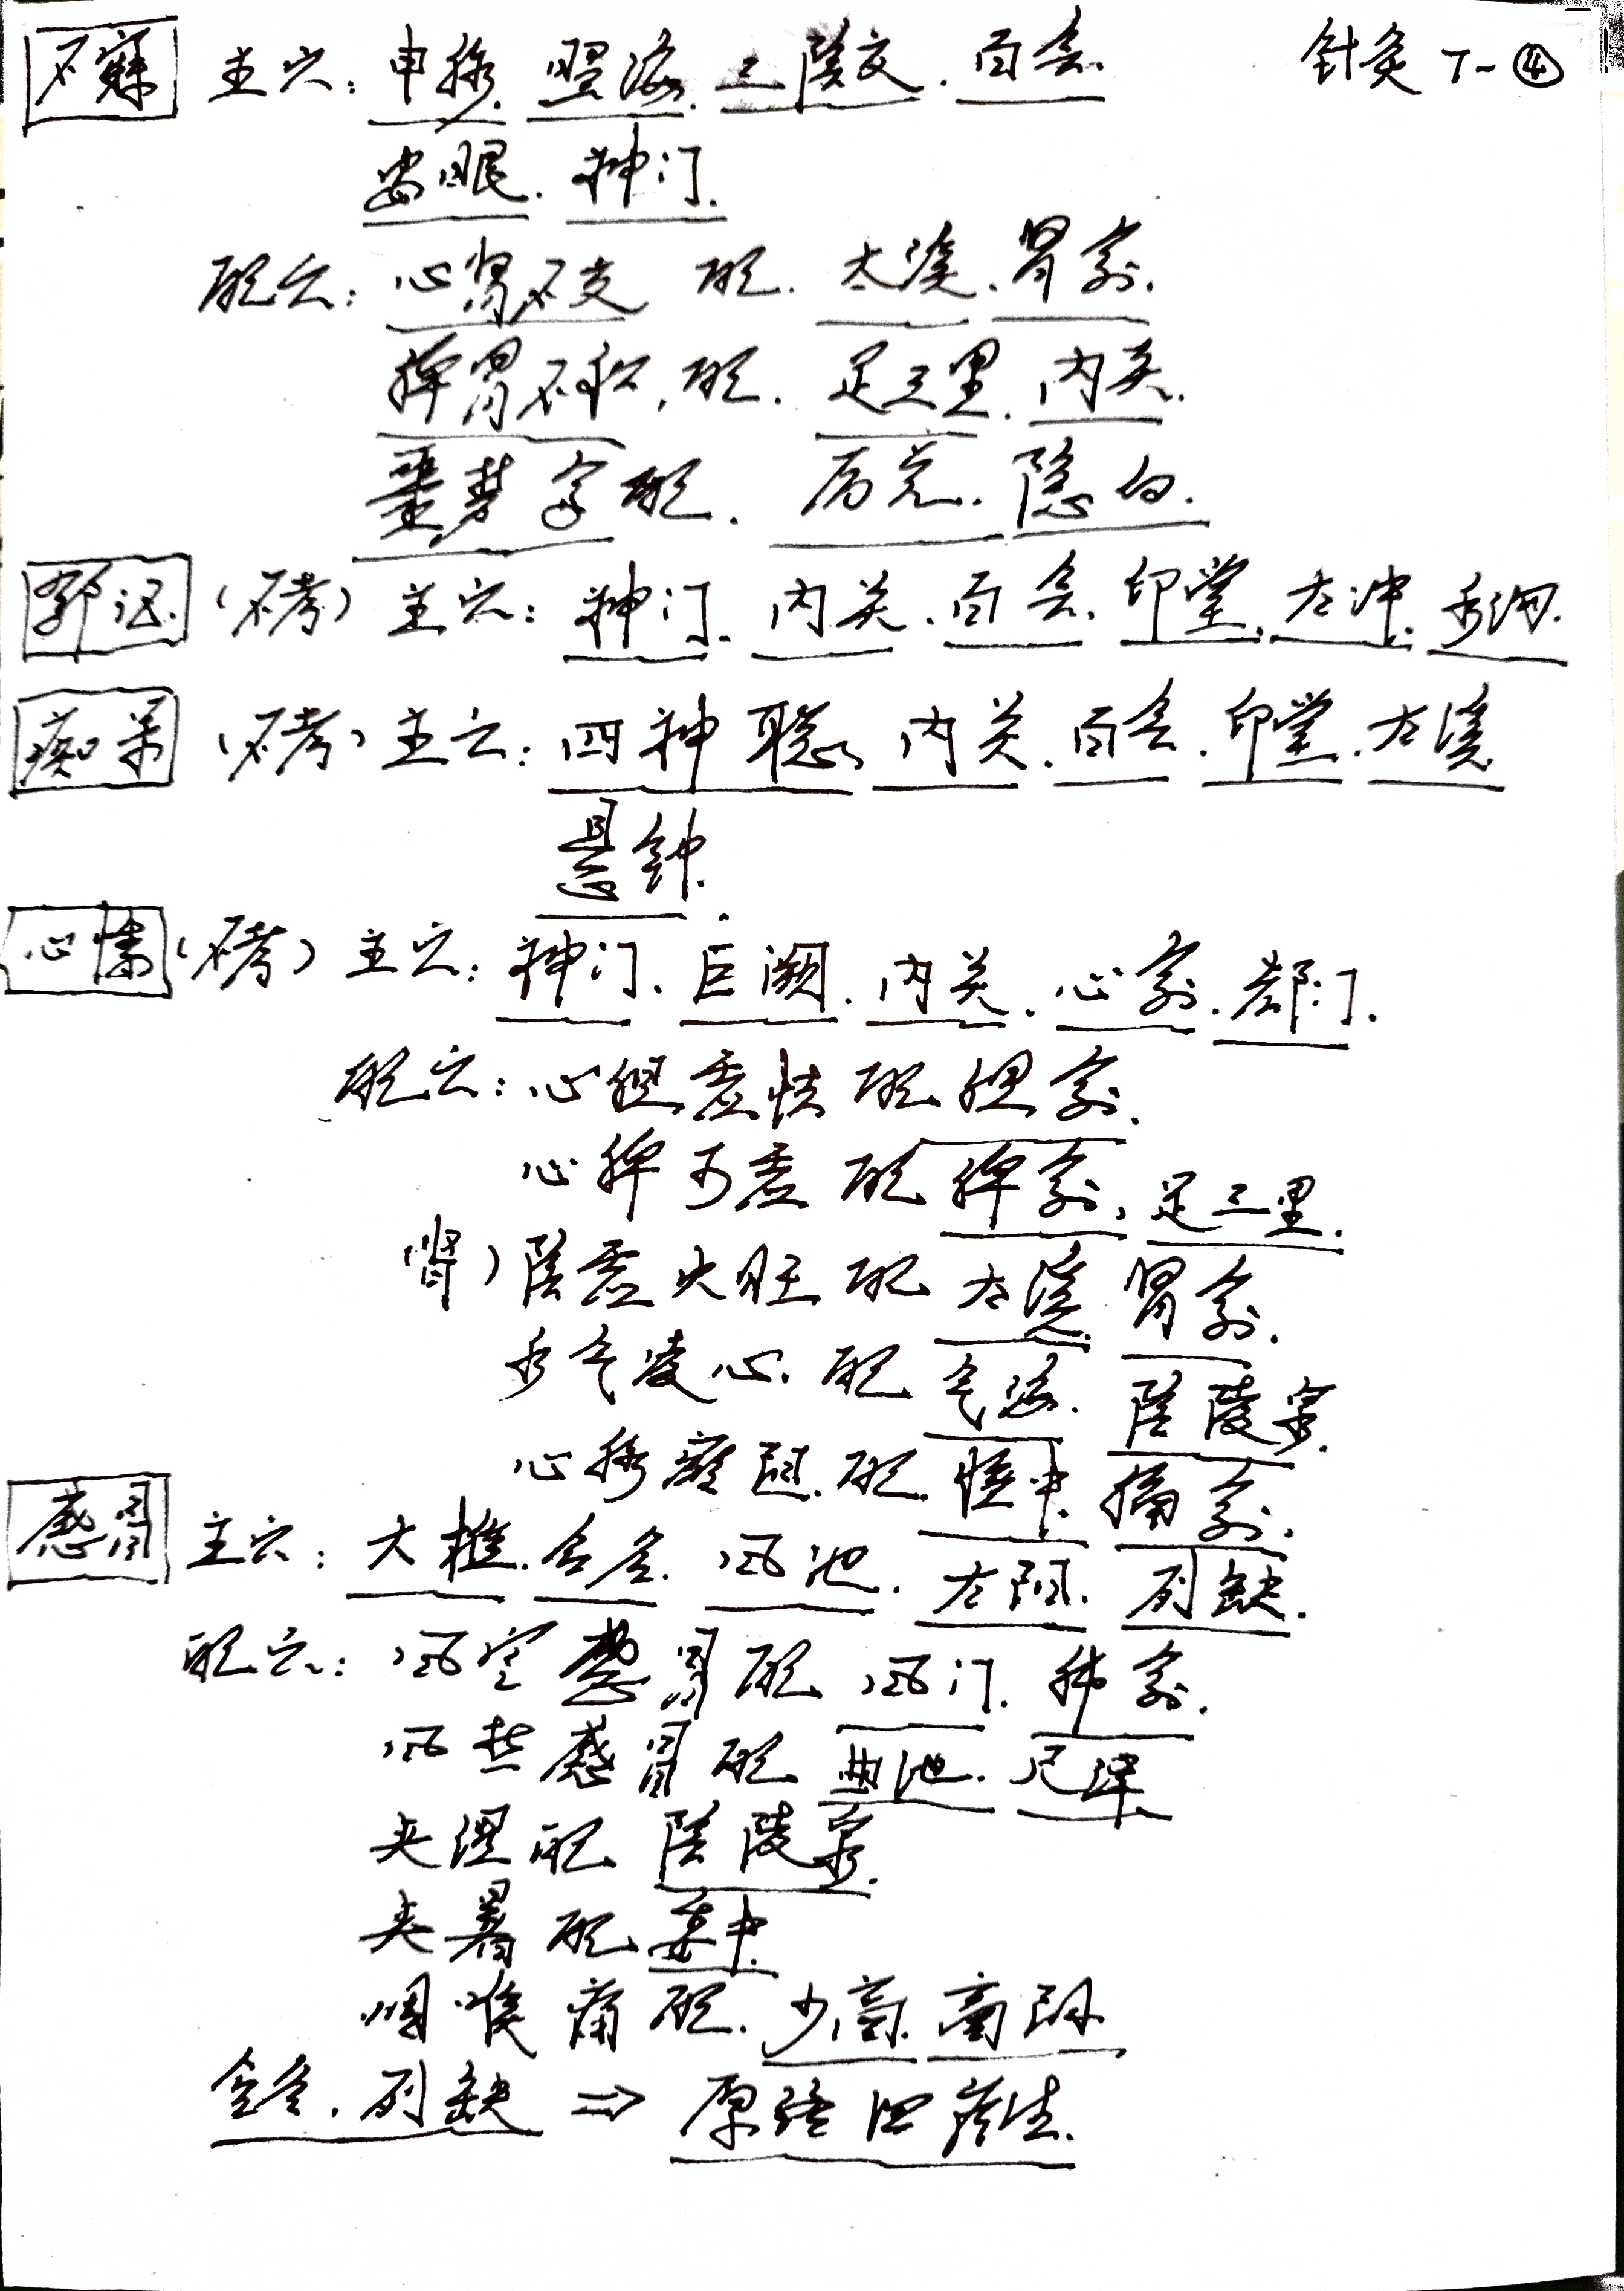 不寐 主穴：申脉.照海.三陰交.百会. 针灸 T-④
安眠.神门.
配穴：心肾不交 配.太溪.肾俞.
脾胃不和,配.足三里.内关.
噩梦字配.厉兑.隐白.
郁证(不考)主穴：神门.内关.百会.印堂.太冲.水沟.
痴呆(不考)主穴：四神聪、内关.百会.印堂.太溪
悬钟.
心悸(不考)主穴：神门.巨阙.内关.心俞.郄门.
配穴：心胆虚怯配胆俞.
心脾可虚配脾俞,足三里.
肾)陰虚火旺配太溪.肾俞.
水气凌心.配气海.陰陵泉.
心脉瘀阻.配.膻中.膈俞.
感冒 主穴：大椎.合谷.风池.太阳.列缺.
配穴：风寒感冒配风门.肺俞.
风热感冒配曲池.尺泽
夹湿配陰陵泉.
夹暑配委中.
咽喉痛配.少商.商阳
合谷.列缺⇒原络